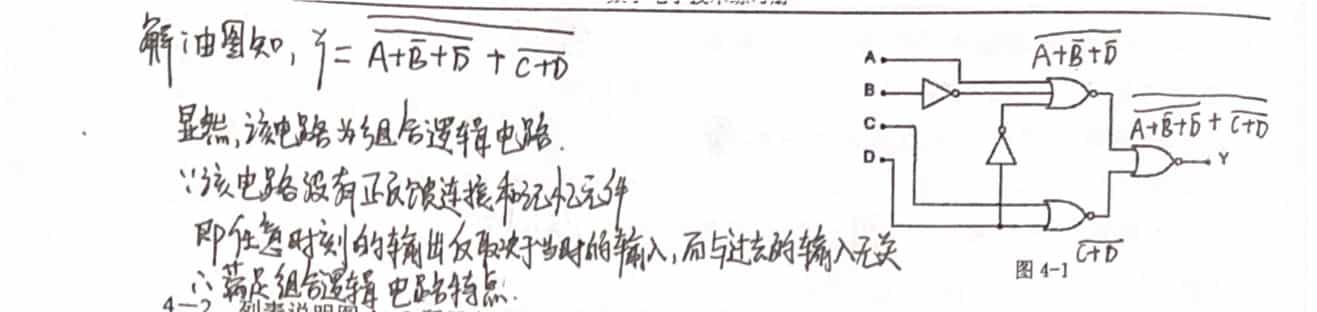 解:由图知, Y = \overline{\overline{A+\overline{B}+\overline{D}} + \overline{C+D}}
显然,该电路为组合逻辑电路.
∵该电路没有正反馈连接和记忆元件
即任意时刻的输出仅取决于当时的输入,而与过去的输入无关
∴满足组合逻辑电路特点.
\overline{A+\overline{B}+\overline{D}}
A
B
C
D
\overline{\overline{A+\overline{B}+\overline{D}} + \overline{C+D}}
Y
\overline{C+D}
图 4-1
4-2 列表说明图